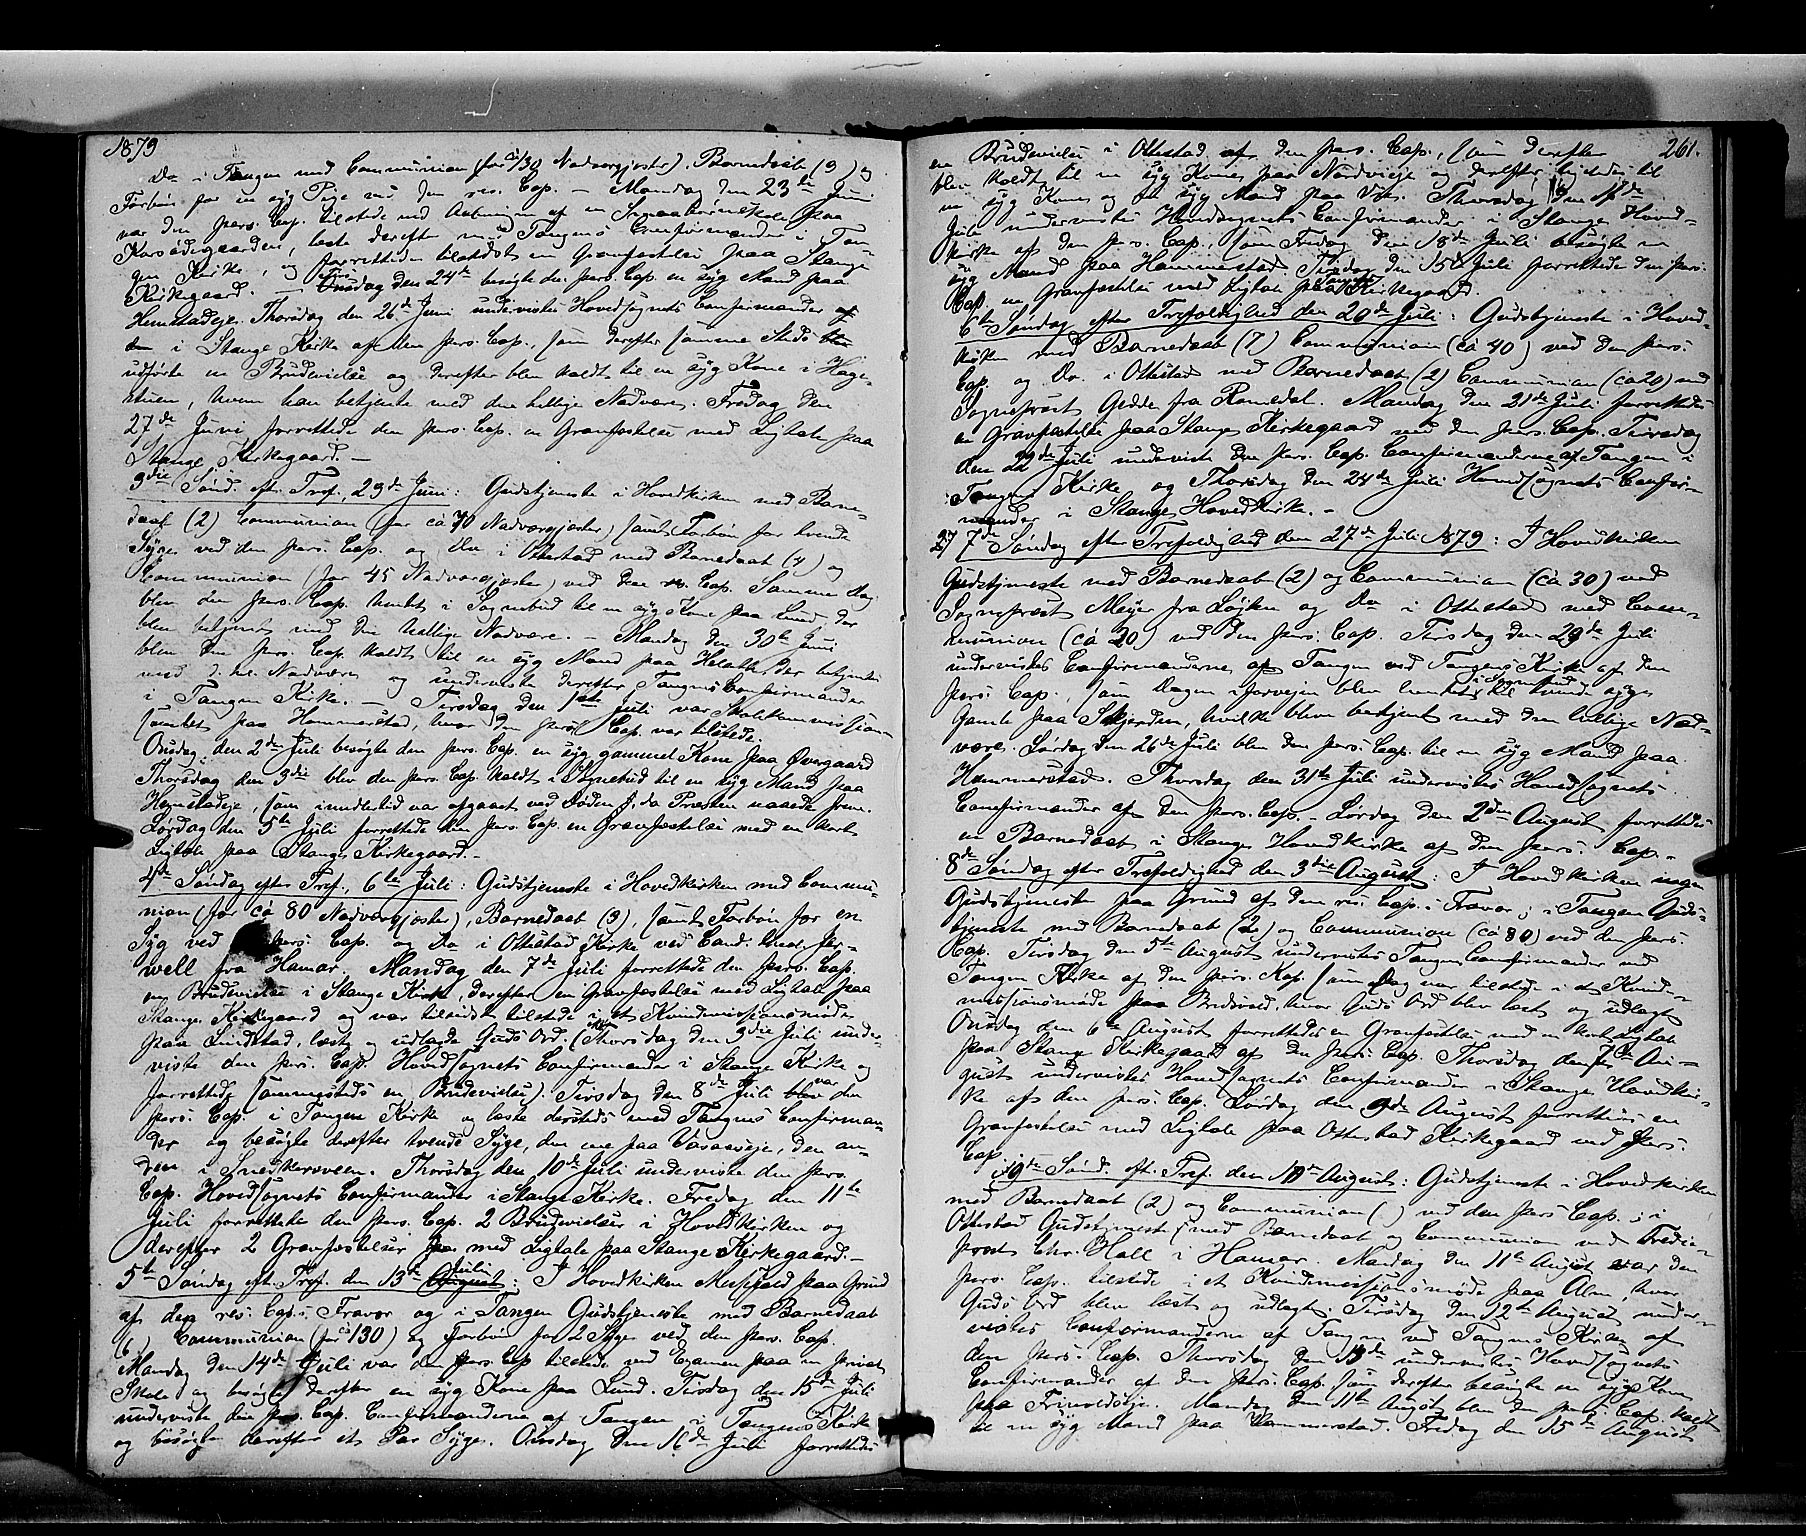 1879
Do i Tangen med Communion (for ca 130 Nadvergjæster). Barnedaab (9) og
Forbøn for en syg Pige ved den res. Cap. – Mandag den 23de Juni
var den pers. Cap. tilstede ved Aabningen af en Smaabørnsskole paa
Korsødegaarden, læste derefter med Tangens Confirmander i Tan-
gen Kirke, og forrettede tilsidst en Gravfæstelse paa Stange
Kirkegaard. – Tirsdag den 24de besøgte den pers. Cap. en syg Mand paa
Hemstadeje. Thorsdag den 26de Juni undervistes Hovedsognets Confirmander
i Stange Kirke af den pers. Cap., som derefter samme Steds
udførte en Brudevielse og derefter blev kaldt til en syg Kone i Hage-
stuen, hvem han betjente med den hellige Nadvere. Fredag den
27de Juni forrettede den pers. Cap. en Gravfæstelse med Ligtale paa
Stange Kirkegaard. –
3die Sønd. eft. Tref., 29de Juni: Gudstjeneste i Hovedkirken med Barne-
daab (2) Communion (for ca 70 Nadvergjæster) samt Forbøn for tvende
Syge ved den pers. Cap. og Do i Ottestad med Barnedaab (4) og
Communion (for 45 Nadvergjæster) ved den res. Cap. Samme Dag
blev den pers. Cap. hentet i Sognebud til en syg Kone paa Lund, der
blev betjent med den hellige Nadvere. – Mandag den 30te Juni
blev den pers. Cap. kaldt til en syg Mand paa Helset, der betjentes
med d. hel. Nadvere og underviste derefter Tangens Confirmander
i Tangen Kirke. – Tirsdag den 1ste Juli var Skolekommissjonen
samlet paa Hammerstad, hvor den pers. Cap. var tilstede.
Onsdag den 2den Juli besøgte den pers. Cap. en syg gammel Kone paa Øvergaard
Thorsdag den 3die blev den pers. Cap. kaldt i Sognebud til en syg Mand paa
Hemstadeje, som imidlertid var afgaaet ved Døden, da Præsten naaede frem.
Lørdag den 5te Juli forrettede den pers. Cap. en Gravfæstelse med en kort
Ligtale paa Stange Kirkegaard. –
4de Søndag efter Tref., 6te Juli: Gudstjeneste i Hovedkirken med Commu-
nion (for ca 80 Nadvergjæster), Barnedaab (9), samt Forbøn for en
Syg ved pers. Cap. og Do i Ottestad Kirke ved Cand. theol. Jer-
well fra Hamar. Mandag den 7de Juli forrettede den pers. Cap.
en Brudevielse i Stange Kirke, derefter en Gravfæstelse med Ligtale paa
Stange Kirkegaard og var tilsidst tilstede i et Kvindemissionsmøde
paa Lindstad, læste og udlagde Guds Ord. (Thorsdag den 3die Juli under-
viste den pers. Cap. Hovedsognets Confirmander i Stange Kirke og
forrettede sammesteds en Brudevielse). Tirsdag den 8de Juli var den
pers. Cap. i Tangen Kirke og læste dersteds med Tangens Confirman-
der og besøgte derefter tvende Syge, den ene paa Vasaaseje, den an-
den i Snedkersveen. Thorsdag den 10de Juli underviste den pers.
Cap. Hovedsognets Confirmander i Stange Kirke. Fredag den 11te
Juli forrettede den pers. Cap. 2 Brudevielser i Hovedkirken og
derefter 2 Gravfæstelser med Ligtale paa Stange Kirkegaard. –
5te Søndag eft. Tref. den 13de Juli: I Hovedkirken Messefald paa Grund
af den res. Cap.s Fravær og i Tangen Gudstjeneste med Barnedaab
(6) Communion (for ca 130) og Forbøn for 2 Syge ved den pers. Cap.
Mandag den 14de Juli var den pers. Cap. tilstede ved Examen paa en privat
Skole og besøgte derefter en syg Kone paa Lund. Tirsdag den 15de Juli
underviste den pers. Cap. Confirmanderne af Tangen i Tangens Kirke
og besøgte derefter et Par Syge. Onsdag den 16de Juli forrettedes
261.
en Brudevielse i Ottestad af den pers. Cap., som derefter
blev kaldt til en syg Kone paa Nordvieje og derefter ligeledes til
en syg Kone og en syg Mand paa Vye. Thorsdag den 17de
Juli undervistes Hovedsognets Confirmander i Stange Hoved-
kirke af den pers. Cap., som Fredag den 18de Juli besøgte en
syg Mand paa Hammerstad. Tirsdag den 15de Juli forrettede den pers.
Cap. en Gravfæstelse med Ligtale paa Tangens Kirkegaard.
6te Søndag efter Trefoldighed den 20de Juli: Gudstjeneste i Hoved-
kirken med Barnedaab (7) Communion (ca 40) ved den pers.
Cap. og Do. i Ottestad med Barnedaab (2) Communion (ca 20) ved
Sognepræst Gedde fra Romedal. Mandag den 21de Juli forrettedes
en Gravfæstelse paa Stange Kirkegaard ved den pers. Cap. Tirsdag
den 22de Juli underviste den pers. Cap. Confirmanderne af Tangen i
Tangens Kirke og Thorsdag den 24de Juli Hovedsognets Confir-
mander i Stange Hovedkirke. –
7de Søndag efter Trefoldighed den 27de Juli 1879: I Hovedkirken
Gudstjeneste med Barnedaab (2) og Communion (ca 30) ved
Sognepræst Meyer fra Løjten og Do i Ottestad med Com-
munion (ca 20) ved den pers. Cap. Tirsdag den 29de Juli
undervistes Confirmanderne af Tangen ved Tangens Kirke af den
pers. Cap., som Dagen iforvejen blev hentet i Sognebud til tvende syge
Gamle paa Skjerden, hvilke bleve betjent med den hellige Nad-
vere. Lørdag den 26de Juli blev den pers. Cap. til en syg Mand paa
Hammerstad. Thorsdag den 31te Juli undervistes Hovedsognets
Confirmander af den pers. Cap. – Lørdag den 2den August forrettedes
en Barnedaab i Stange Hovedkirke af den pers. Cap. –
8de Søndag efter Trefoldighed den 3die August: I Hovedkirken ingen
Gudstjeneste paa Grund af den res. Cap.s Fravær; i Tangen Guds-
tjeneste med Barnedaab (2) og Communion (ca 80) ved den pers.
Cap. Tirsdag den 5te August undervistes Tangens Confirmander ved
Tangen Kirke af den pers. Kap. som Dag var tilstede i et Kvinde-
missjonsmøde paa Bredsvold, hvor Guds Ord blev læst og udlagt
Onsdag den 6te August forrettedes en Gravfæstelse med en kort Ligtale
paa Stange Kirkegaard af den pers. Cap. Thorsdag den 7de Au-
gust undervistes Hovedsognets Confirmander i Stange Hovedkir-
ke af den pers. Cap. Lørdag den 9de August forrettedes en
Gravfæstelse med Ligtale paa Ottestad Kirkegaard ved pers.
Cap.
9de Sønd. eft. Tref. den 10de August: Gudstjeneste i Hovedkirken
med Barnedaab (2) og Communion ( ) ved den pers Cap.; i
Ottestad Gudstjeneste med Barnedaab og Communion ved Fredie-
præst Chr. Hall i Hamar. Mandag den 11te August var den
pers. Cap. tilstede i et Kvindemissjonsmøde paa Alm, hvor
Guds Ord blev læst og udlagt. Tirsdag den 12te August under-
vistes Confirmanderne af Tangen ved Tangens Kirke af
den pers. Cap. Thorsdag den undervistes Hovedsognets
Confirmander af den pers. Cap. som derefter besøgte en syg Kone
paa Frinvoldseje. Mandag den 11te August blev den pers. Cap. kaldt
til en syg Mand paa Hammerstad. Fredag den 15de August